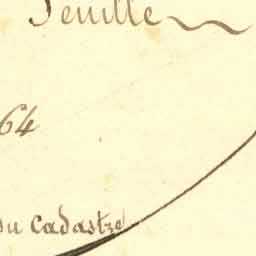 Feuille
64
du Cadastre